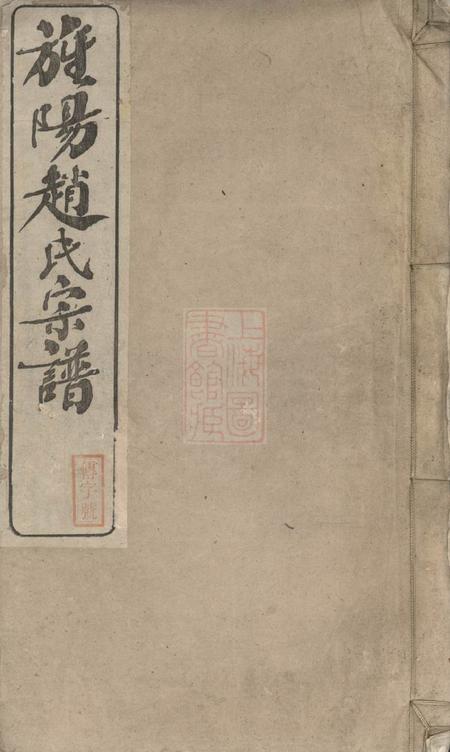 旌陽趙氏宗譜
轉字號
上海圖
書館藏